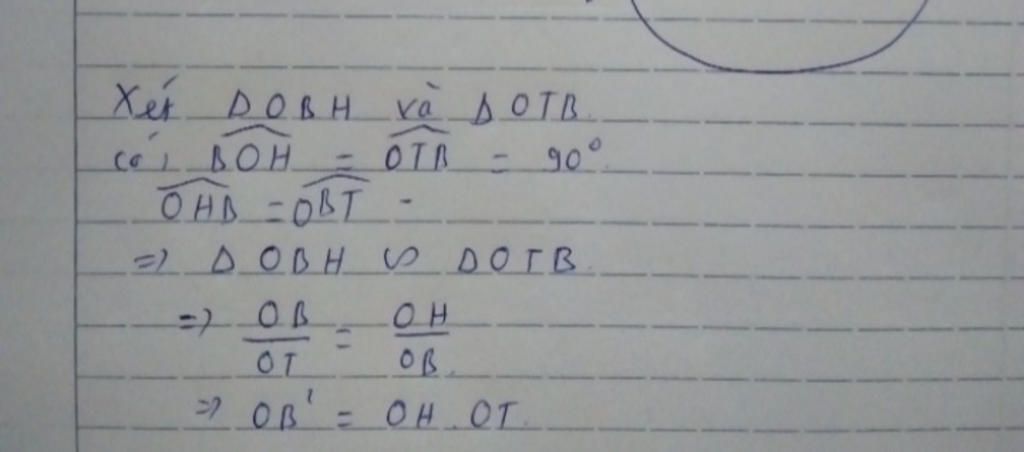 Xét ΔOBH và ΔOTB
có, \widehat{BOH} = \widehat{OTB} = 90°
\widehat{OHB} = \widehat{OBT} -
=> ΔOBH ∽ ΔOTB.
=> \frac{OB}{OT} = \frac{OH}{OB}.
=> OB' = OH.OT.